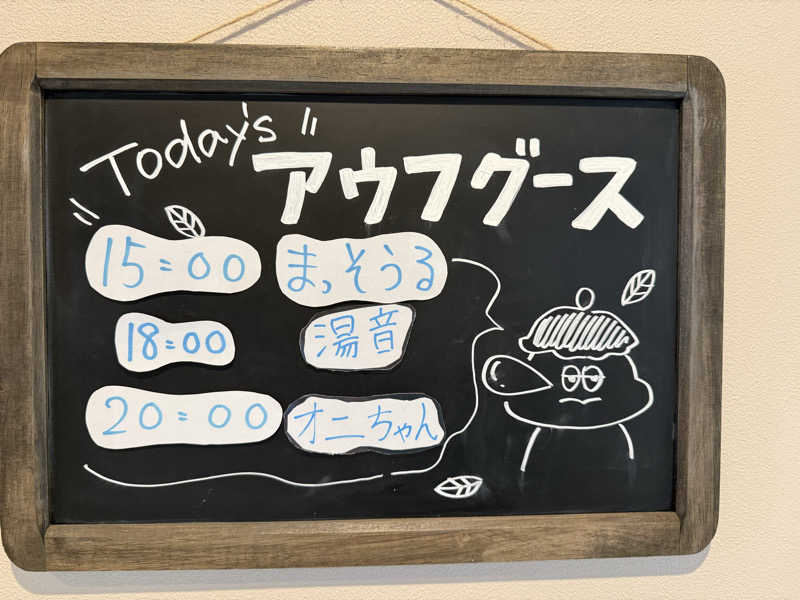 Today's アウフグース
15:00 まっそうる
18:00 湯音
20:00 オニちゃん